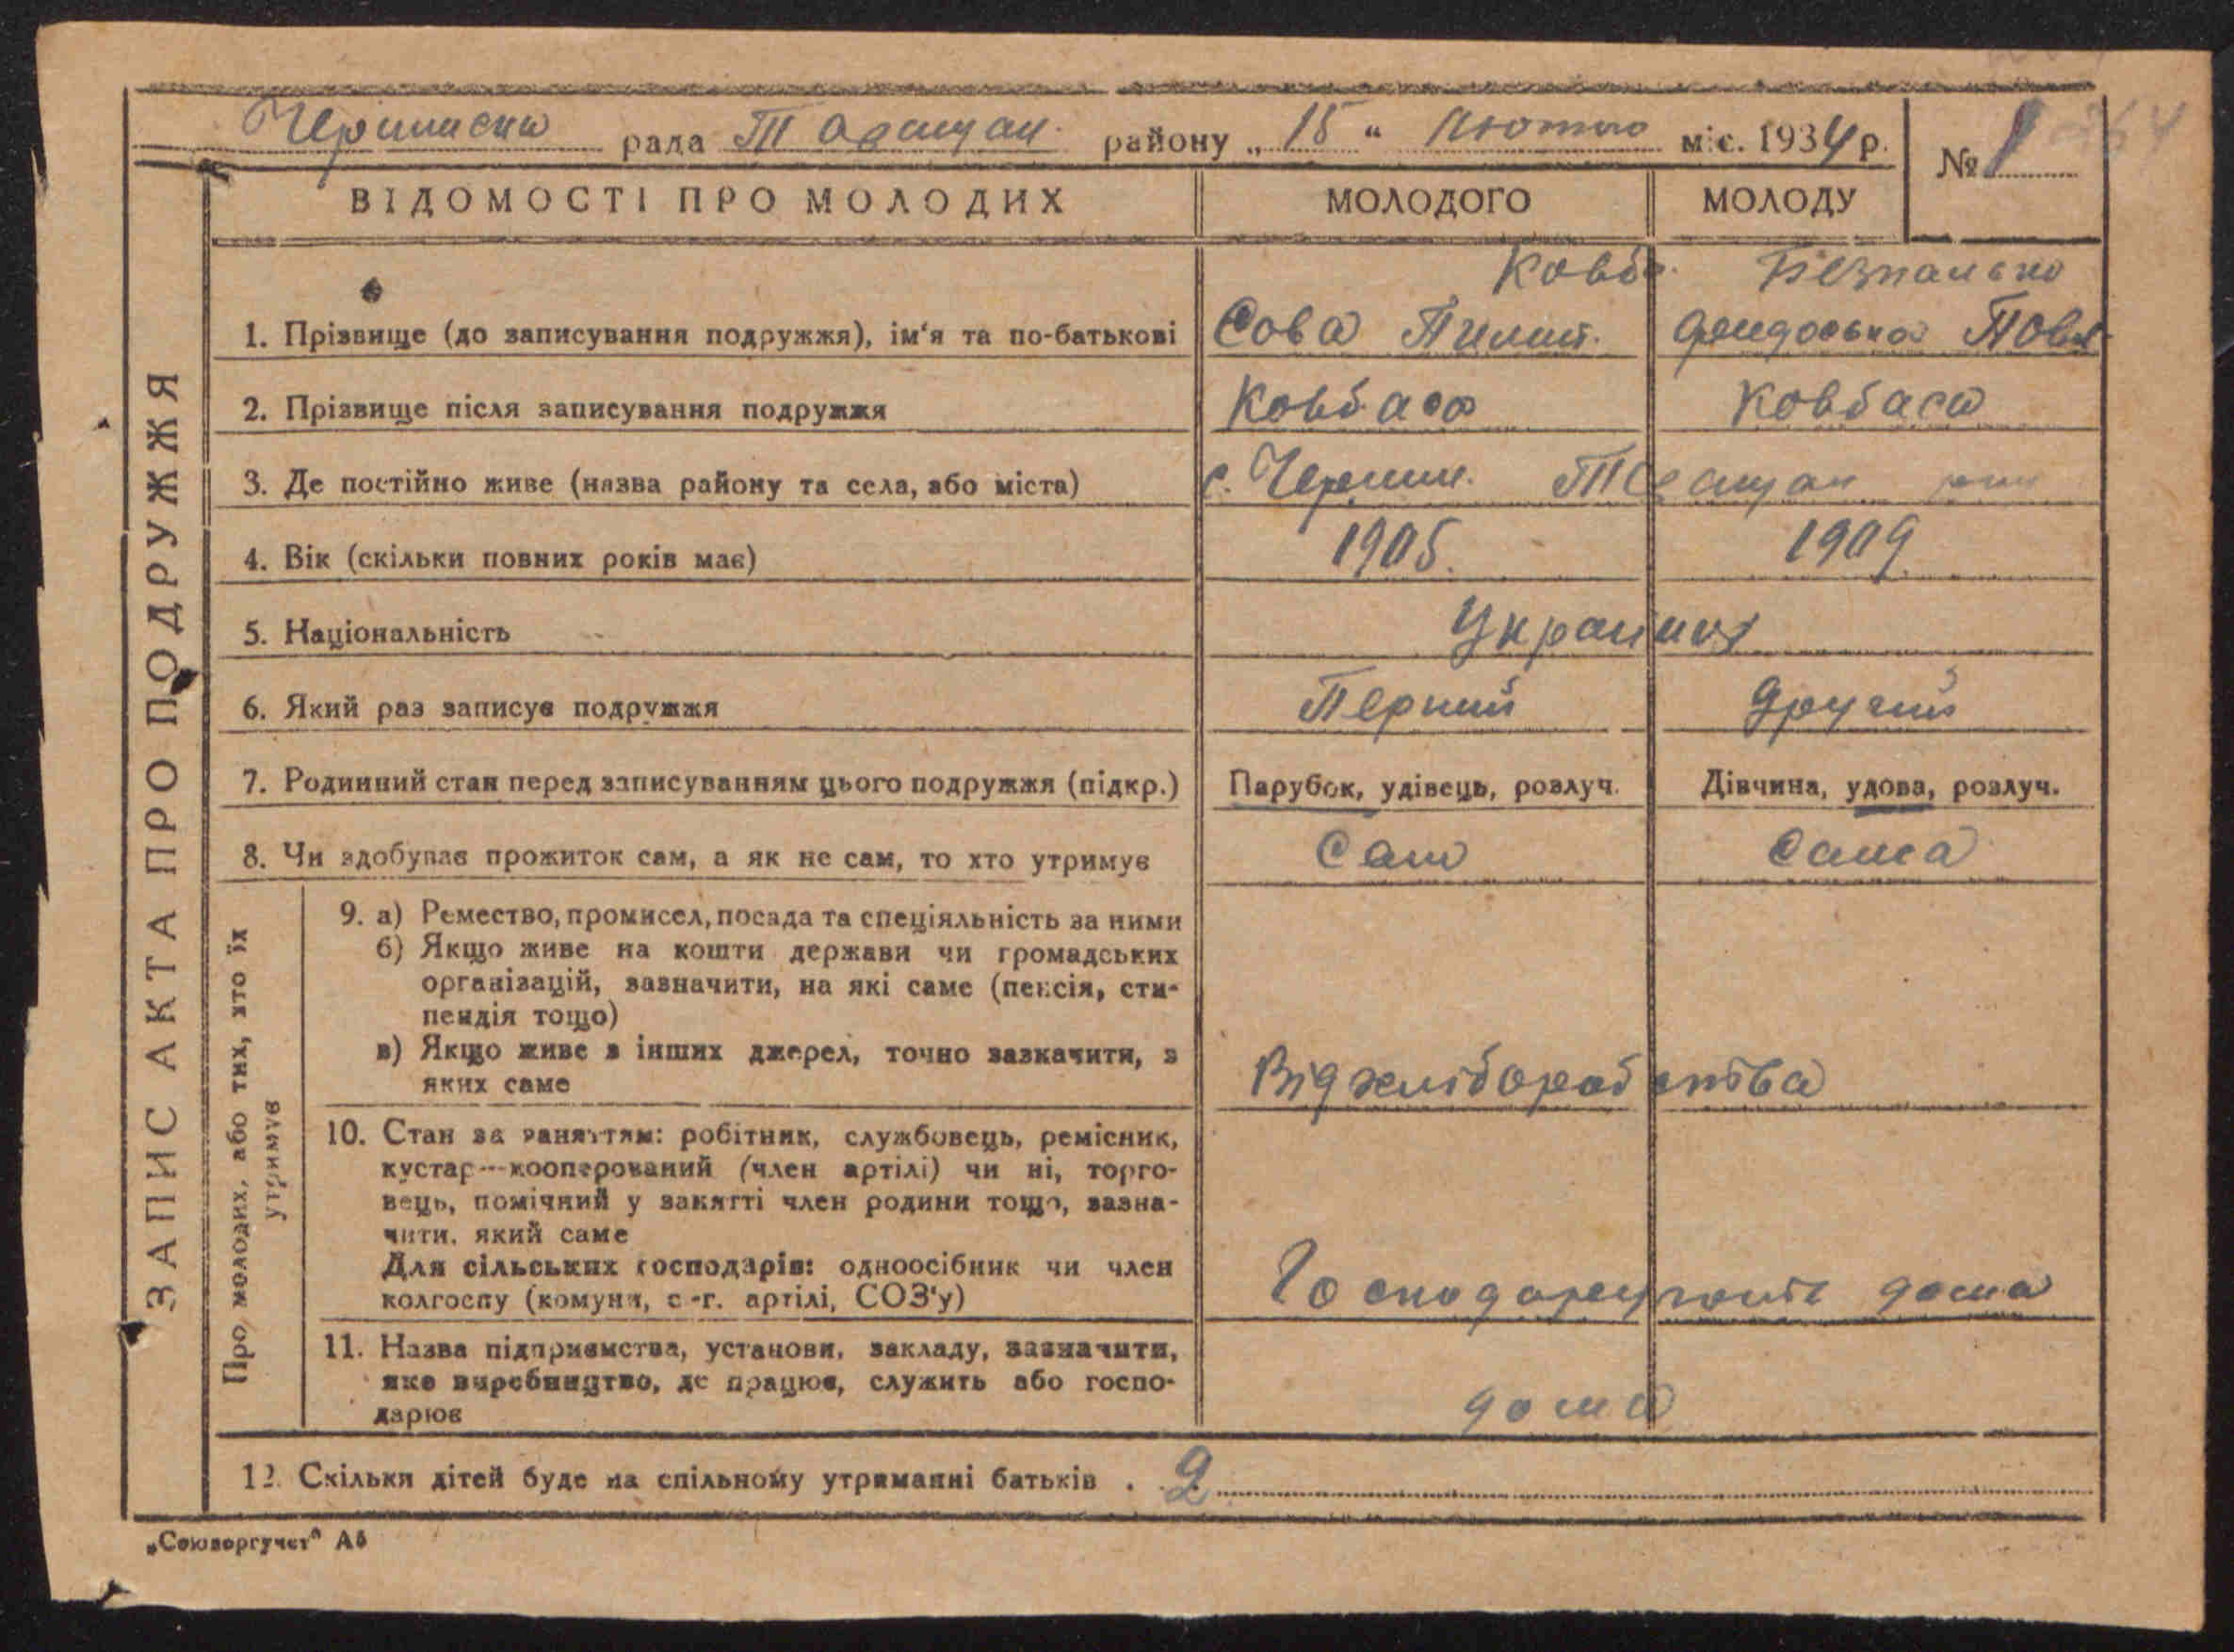 Черниська рада Таращан. району „15“ Лютого міс. 1934 р. № 1
ВІДОМОСТІ ПРО МОЛОДИХ МОЛОДОГО МОЛОДУ
ЗАПИС АКТА ПРО ПОДРУЖЖЯ
Ковба Безпалько
1. Прізвище (до записування подружжя), ім'я та по-батькові Сова Пилип. Фендоська Повл
2. Прізвище після записування подружжя Ковбаса Ковбаса
3. Де постійно живе (назва району та села, або міста) с. Черніш. Таращан
4. Вік (скільки повних років має) 1905. 1909.
5. Національність Українці
6. Який раз записує подружжя Перший Другий
7. Родинний стан перед записуванням цього подружжя (підкр.) Парубок, удівець, розлуч. Дівчина, удова, розлуч.
8. Чи здобуває прожиток сам, а як не сам, то хто утримує Сам Сама
Про молодих, або тих, хто їх
утримує
9. а) Ремество, промисел, посада та спеціяльність за ними
б) Якщо живе на кошти держави чи громадських
організацій, зазначити, на які саме (пенсія, сти-
пендія тощо)
в) Якщо живе з інших джерел, точно зазначити, з
яких саме Від хліборобства
10. Стан за заняттям: робітник, службовець, ремісник,
кустар—кооперований (член артілі) чи ні, торго-
вець, помічний у занятті член родини тощо, зазна-
чити, який саме
Для сільських господарів: одноосібник чи член
колгоспу (комуни, с.-г. артілі, СОЗ'у) Господарують дома
11. Назва підприємства, установи, закладу, зазначити,
яке виробництво, де працює, служить або госпо-
дарює дома
12. Скільки дітей буде на спільному утриманні батьків . 2
„Союзоргучет“ А5